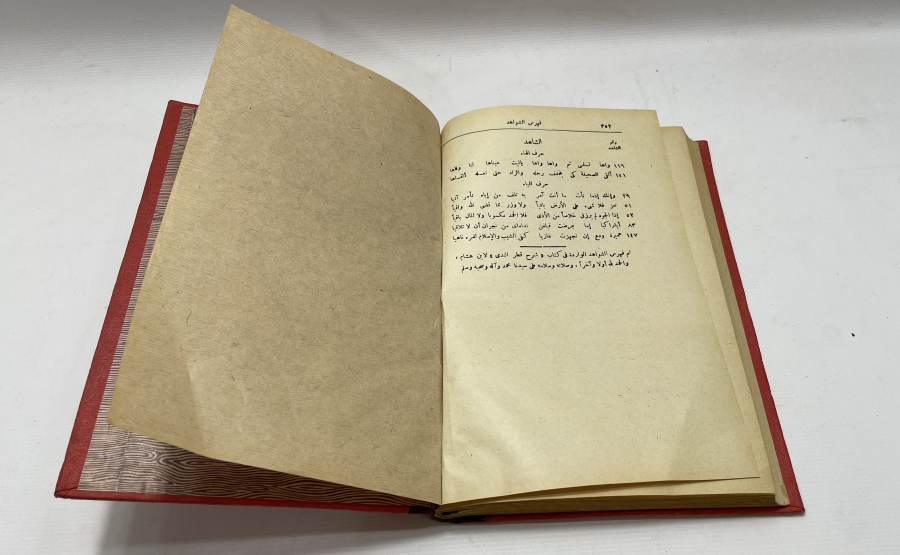 ٣٥٢ فهرس الشواهد
رقم الشاهد الشاهد
حرف الهاء
١١٦ واها لسلمى ثم واها واها ياليت عيناها لنا وفاها
١٤١ ألقى الصحيفة كى يخفف رحله والزاد حتى نعله ألقاها
حرف الياء
٢٩ وإنك إذما تأت ما أنت آمر به تلف من إياه تأمر آتيا
٥١ تعز فلا شىء على الأرض باقيا ولا وزر مما قضى الله واقيا
٥٢ إذا الجود لم يرزق خلاصاً من الأذى فلا الحمد مكسوبا ولا المال باقيا
٨٣ أيا راكبا إما عرضت فبلغن نداماى من نجران أن لا تلاقيا
١٤٧ عميرة ودع إن تجهزت غازيا كفى الشيب والإسلام للمرء ناهيا
تم فهرس الشواهد الواردة فى كتاب « شرح قطر الندى » لابن هشام ،
والحمد لله أولا وآخراً ، وصلاته وسلامه على سيدنا محمد وآله وصحبه وسلم